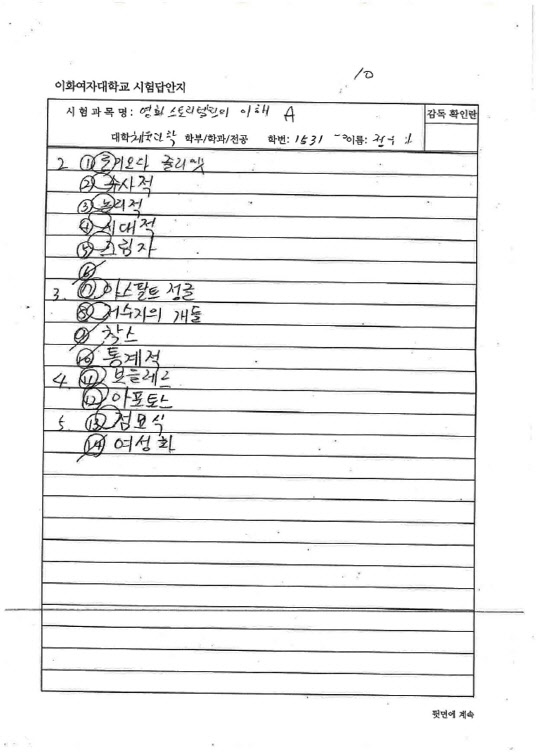 10
이화여자대학교 시험답안지
시 험 과 목 명 : 영화 스토리텔링의 이해 A
감독 확인란
대학 체육과학 학부/학과/전공 학번: 1531 이름:
2 ① 줄리엣
② 수사적
③ 논리적
④ 시대적
⑤ 그림자
⑥
3. ⑦ 아스팔트 정글
⑧ 저수지의 개들
⑨ 찰스
⑩ 통계적
4. ⑪ 보들레르
⑫ 아포토스
5. ⑬ 점묘식
⑭ 여성화
뒷면에 계속